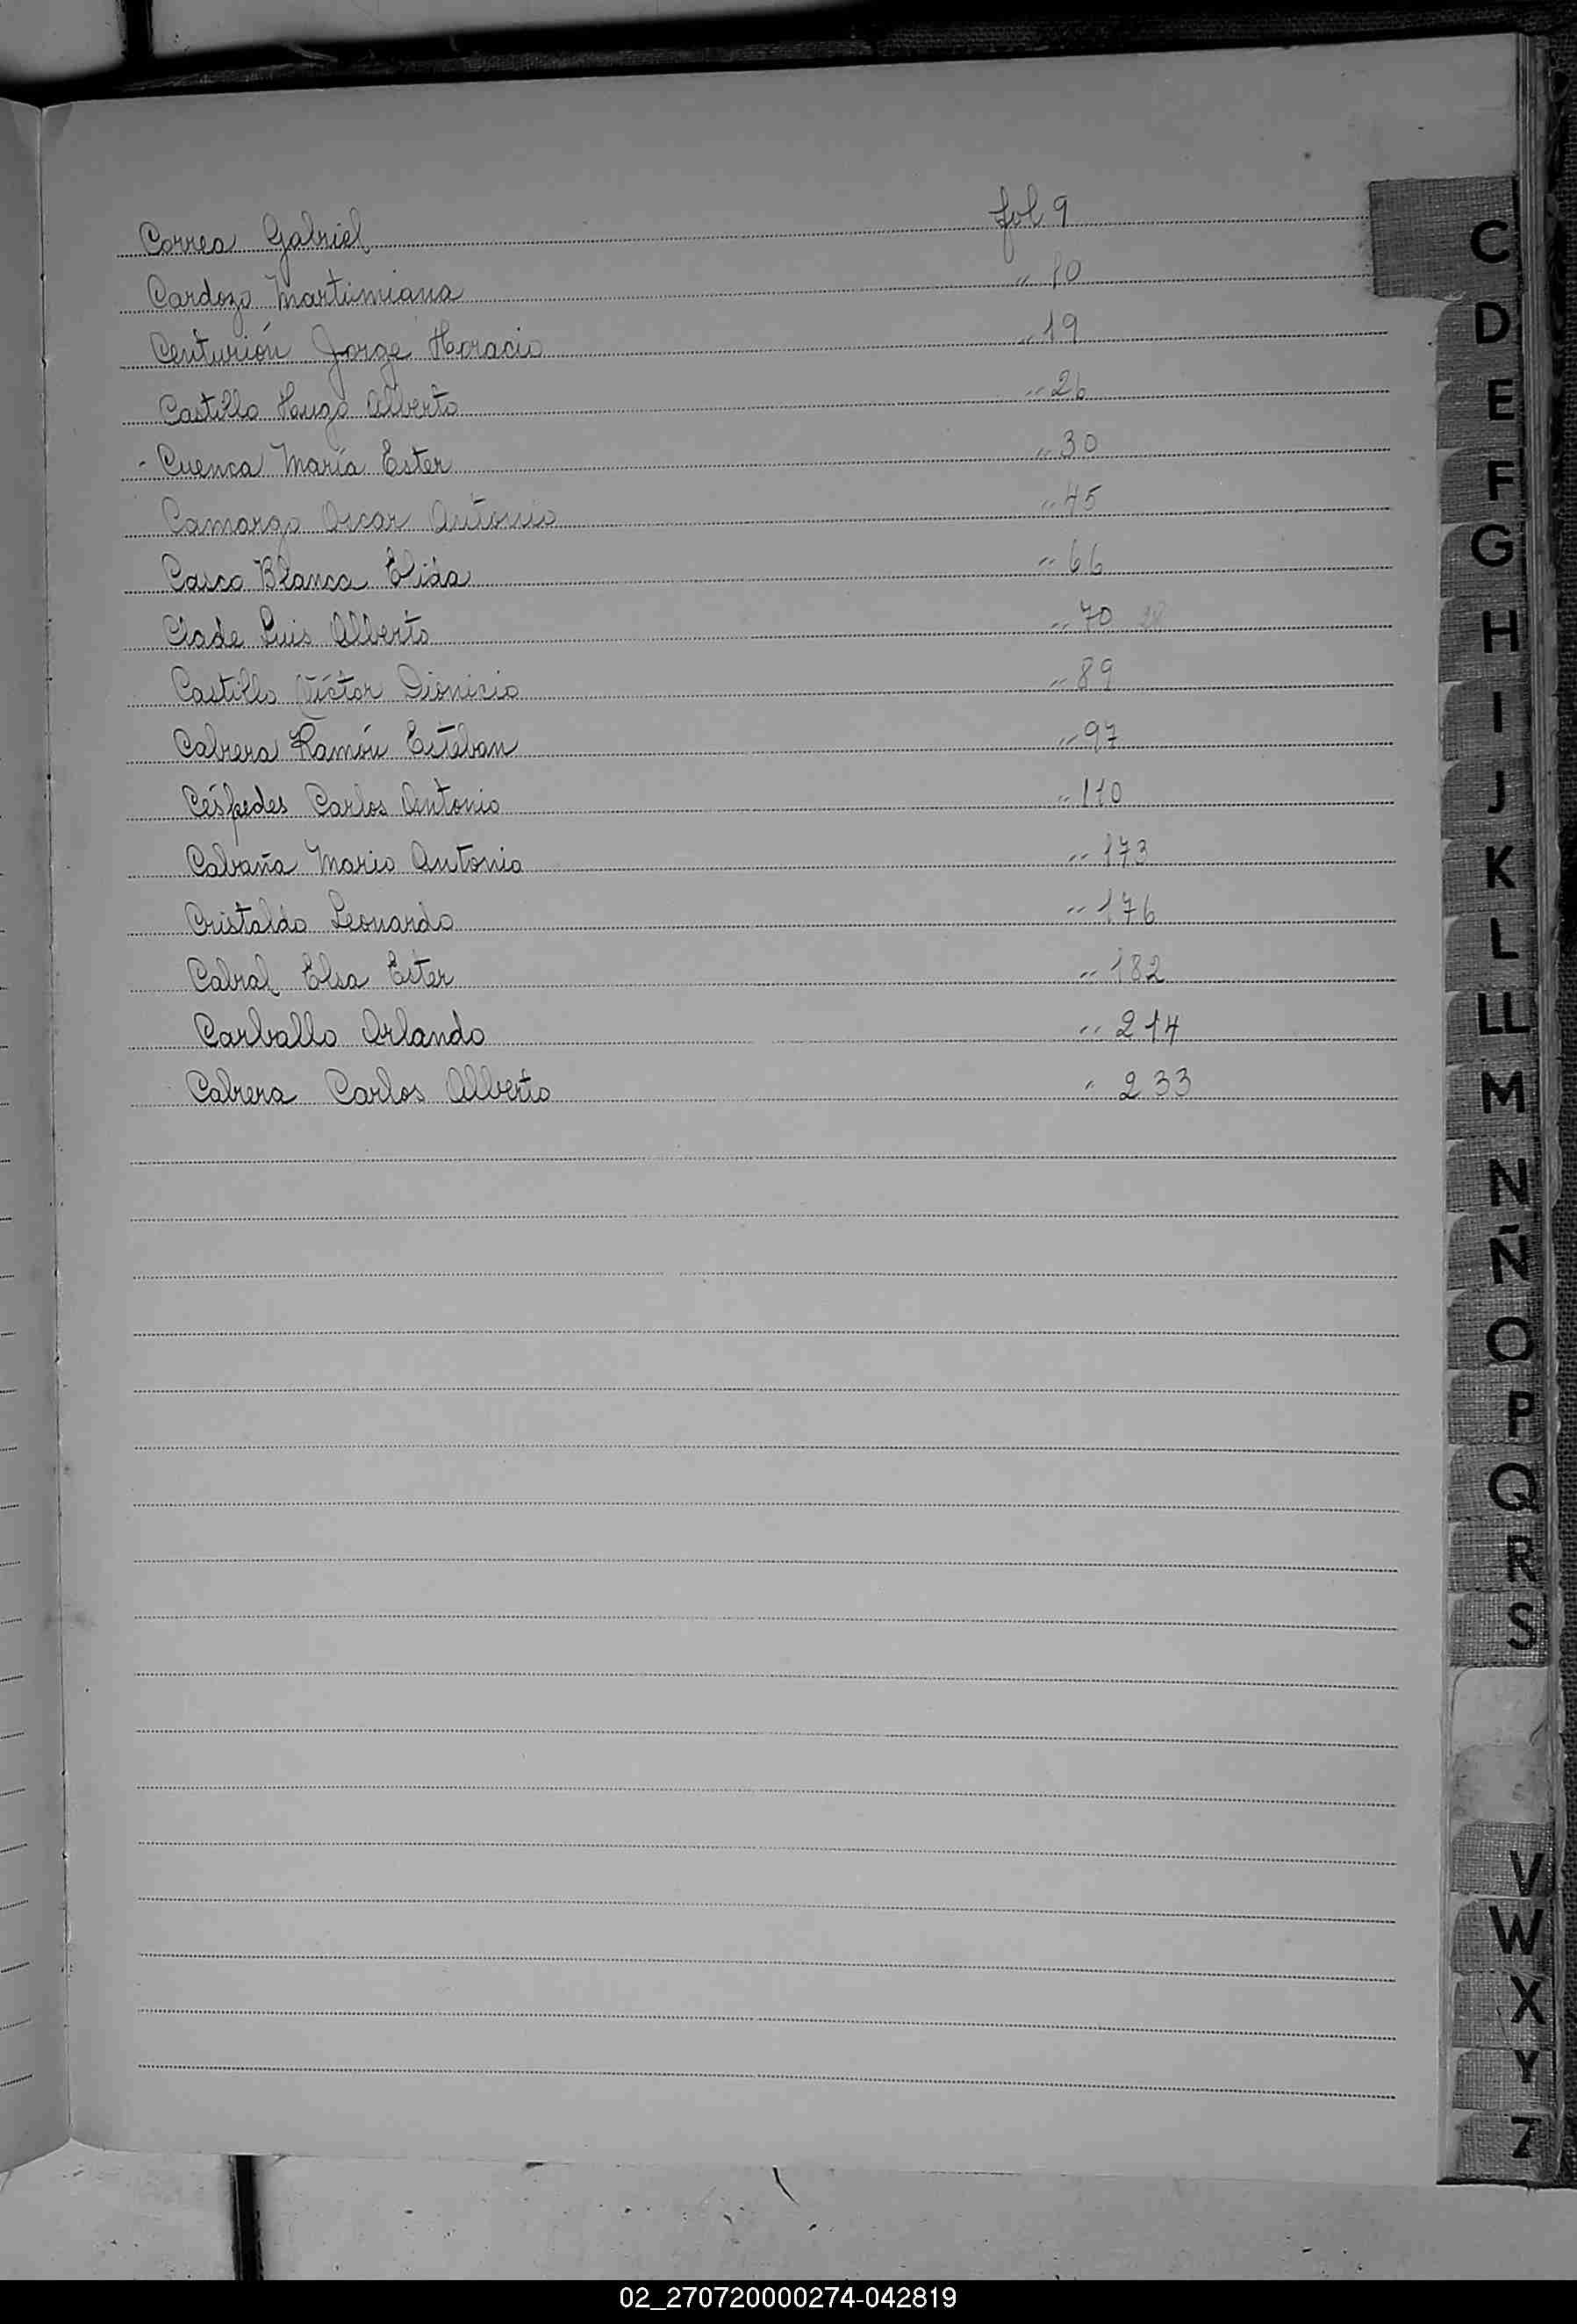 Correa Gabriel fol 9
Cardozo Martiniana " 10
Centurión Jorge Horacio " 19
Castillo Hugo Alberto " 26
- Cuenca María Ester " 30
Camargo Oscar Antonio " 45
Casco Blanca Elida " 66
Clade Luis Alberto " 70
Castillo Víctor Dionicio " 89
Cabrera Ramón Esteban " 97
Céspedes Carlos Antonio " 110
Cabaña Mario Antonio " 173
Cristaldo Leonardo " 176
Cabral Elsa Ester " 182
Carballo Orlando " 214
Cabrera Carlos Alberto " 233
C
D
E
F
G
H
I
J
K
L
LL
M
N
Ñ
O
P
Q
R
S
V
W
X
Y
Z
02_270720000274-042819